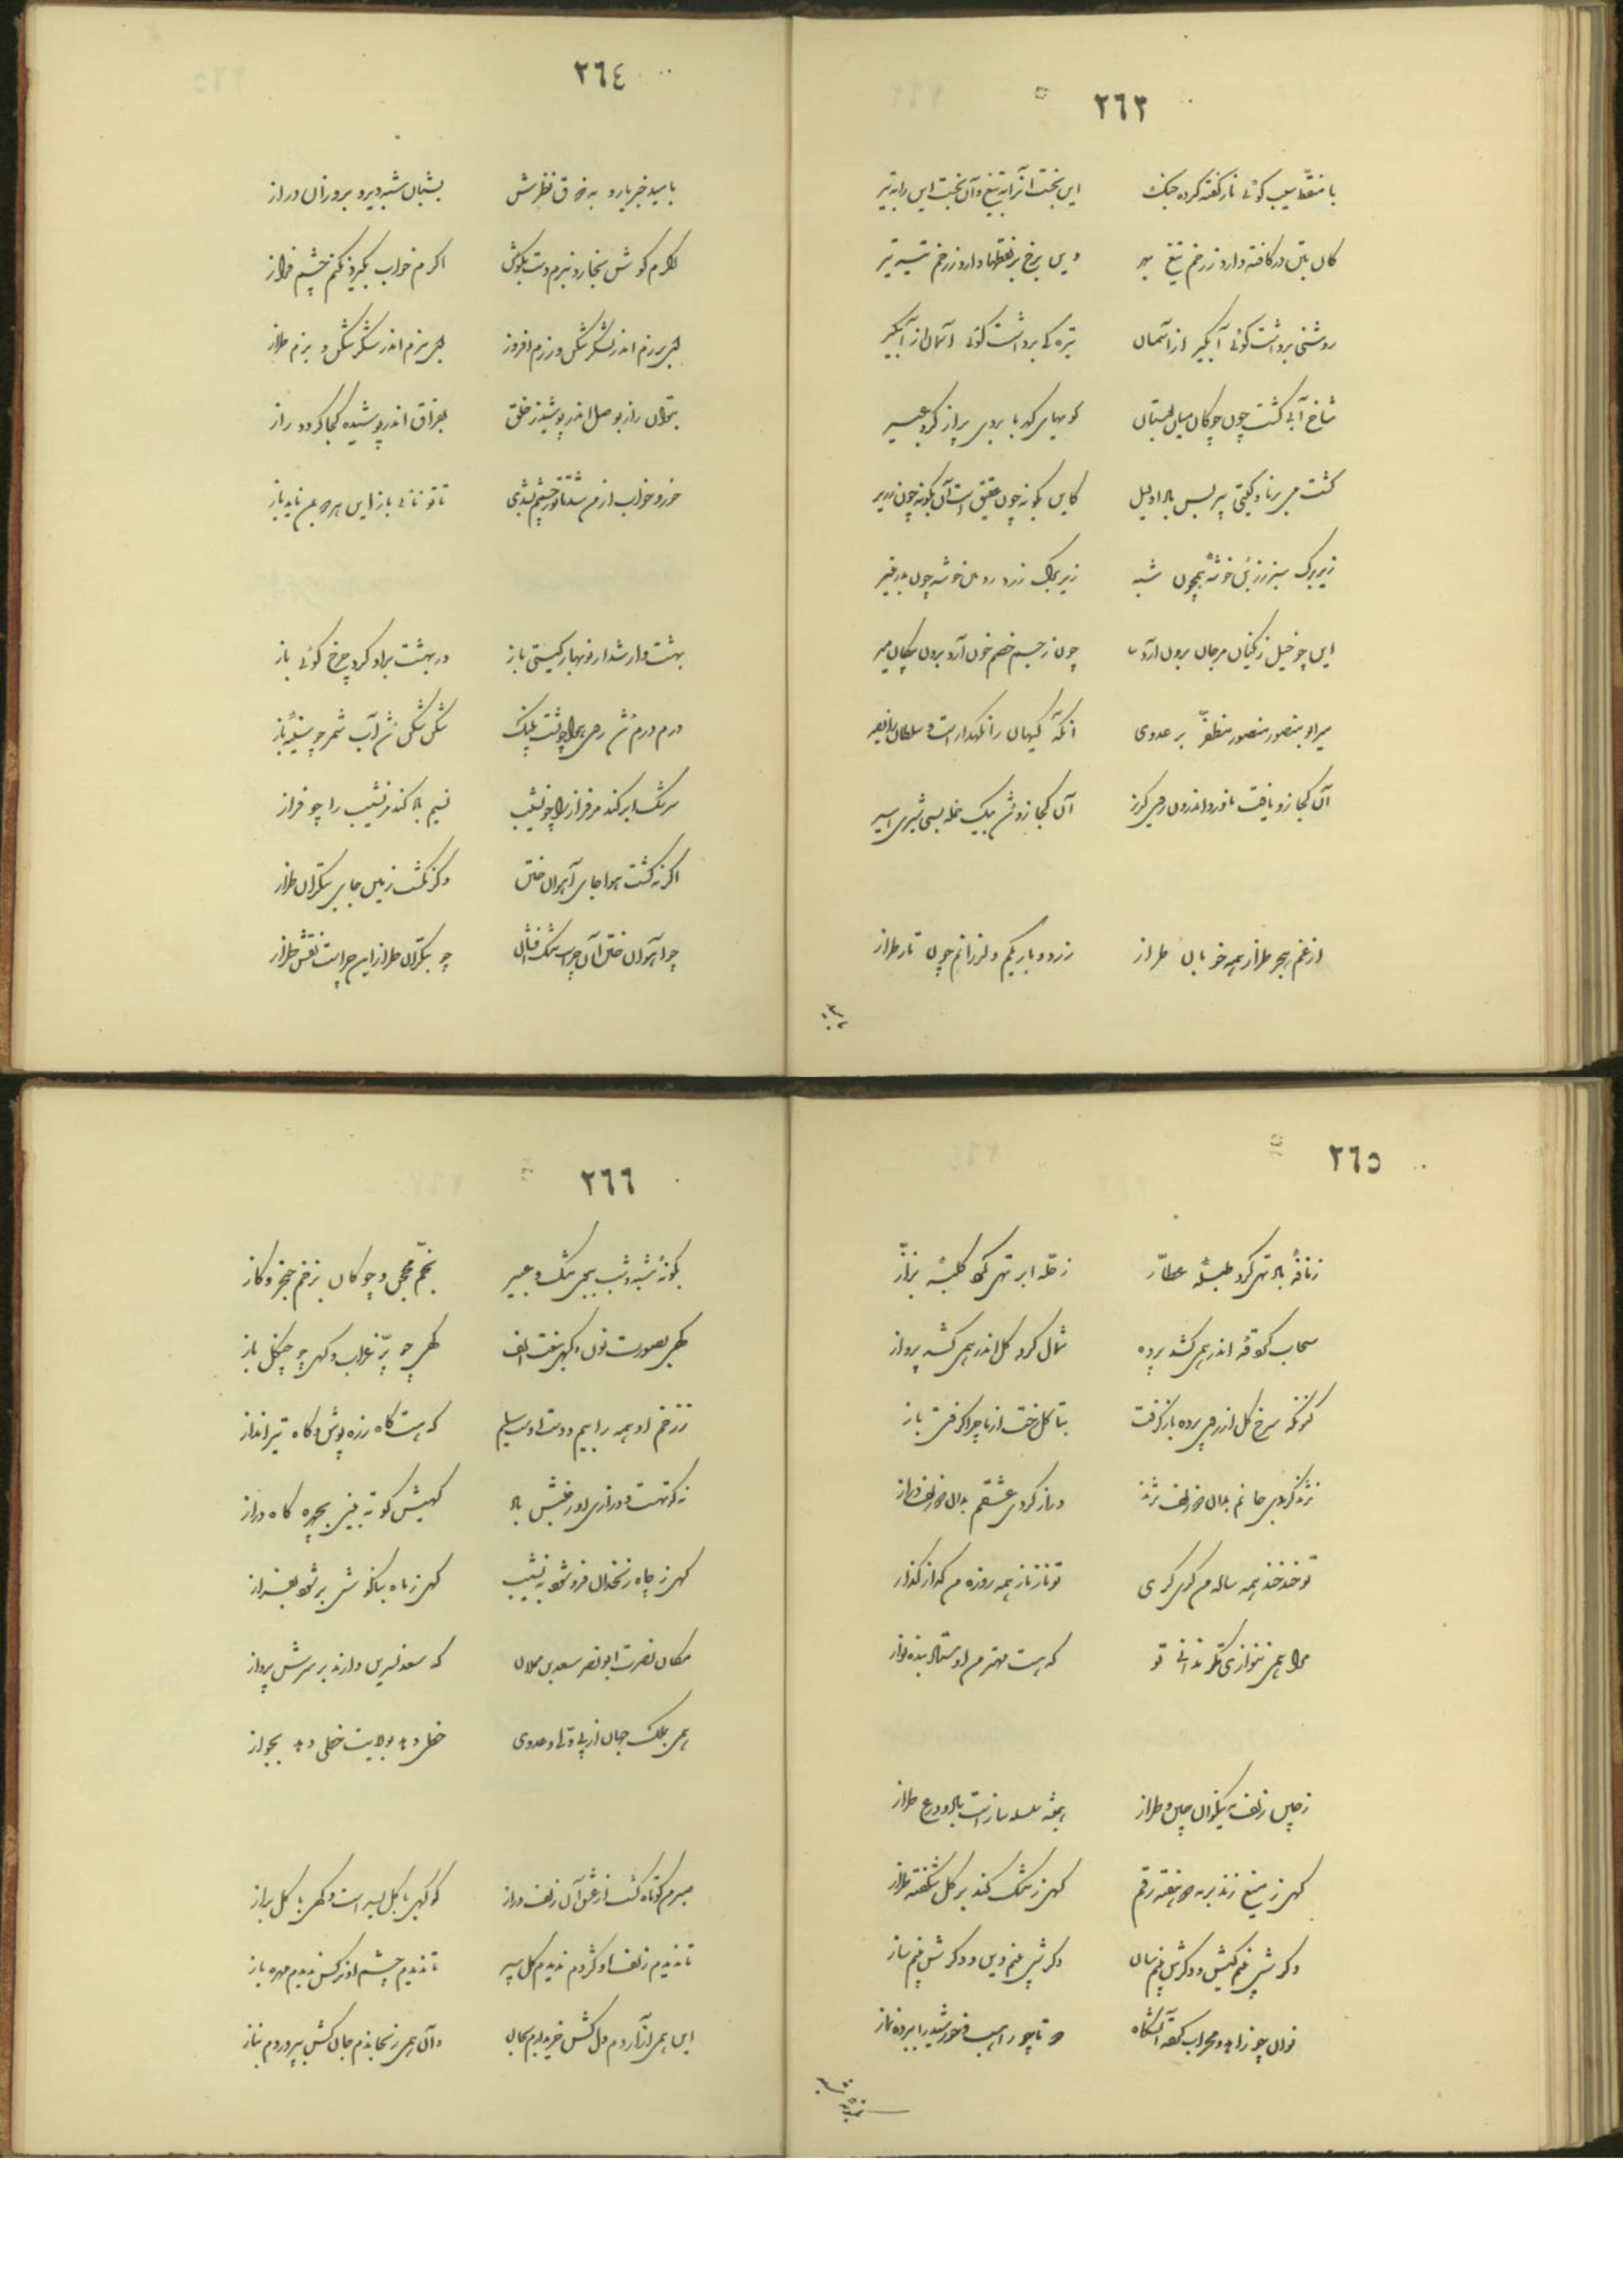 ٢٦٣
با منقّط سیب گوئی نار کفته کرده جنگ این بخست آنرا به تیغ و آن بخست این را به تیر
کان بتن در کافته دارد ز زخم تیغ بر وین برخ بر نقطها دارد ز زخم تیر
روشنی برداشت گوئی آبگیر از آسمان تیرگی برداشت گوئی آسمان از آبگیر
شاخ آبی گشت چون چوگان میان بوستان گویهای کهربا بروی پر از گرد عبیر
گشت می برنا و گیتی پیر پس باد این بگونه چون عقیق است آن بگونه چون زریر
زیر برگ سبز رزبن خوشهٔ همچون شبه زیر برگ زرد رزبن خوشه چون بدر منیر
این چو خیل زنگیان مرجان برون آرد چون ز جسم خصم خون آرد برون پیکان میر
میر ابو منصور منصور مظفّر بر عدوی آنکه گیهان را نگهدار است و سلطان را نصیر
آن کجا زو یافت ناورد اندرون روی گریز آن کجا زو شد بیک حمله بسی شیری اسیر
از غم هجر طراز همه خوبان طراز زرد و باریکم و لرزانم چون تار طراز
٢٦٤
بامید خبر یار و به نظرش بشبان شبه دیر و بروزان دراز
گرم گوش بخارد نبرم دست بگوش اگرم خواب بگیرد نکنم چشم فراز
برزم اندر لشکر شکن و رزم افروز ببزم اندر شکر شکن و بزم طراز
بتوان راز بوصل اندر پوشید ز خلق بفراق اندر پوشیده کجا گردد راز
خور و خواب از من شد تا تو ز چشمم بشدی تا تو نائی باز این هر دو بمن ناید باز
بهشت وار شد از نوبهار گیتی باز در بهشت بر او کرد چرخ گوئی باز
درم درم شد روی هوا چو پشت پلنگ شکن شکن شد آب شمر چو سینهٔ باز
سرشک ابر کند مر فراز را چو نشیب نسیم باد کند مر نشیب را چو فراز
اگر نه گشت هوا جای آهوان ختن وگر نگشت زمین جای بتگران طراز
چو آهوان ختن آن چراست مشک فشان چو بتگران طراز این چراست نقش طراز
٢٦٥
ز نافهٔ باد تهی کرد طبلهٔ عطّار ز حلّه ابر تهی کرد کلبهٔ بزّاز
سحاب گرد که اندر همی کشد پرده شمال گرد گل اندر همی کند پرواز
کنونکه سرخ گل از روی پرده باز گرفت بتا گل رخت از ما چرا گرفتی باز
نژند کردی جانم بدان دو زلف نژند دراز کردی عشقم بدان دو زلف دراز
تو خندخند همه ساله من گری گری تو نازناز همه روزه من گداز گداز
مرا همی ننوازی مگر ندانی تو که هست مهتر من اوستاد بنده نواز
ز چین زلف نیکوان چین و طراز همیشه سلسله ساز است باد و درع طراز
گهی ز تیغ زند بر مه دو هفته رقم گهی ز مشک کند بر گل شکفته طراز
نوان چو زاهد و محراب گه آتشگاه دو تا چو راهب و خورشید را ببرده نماز
٢٦٦
بگونه شبه و شب ببوی مشک و عبیر بخم محجن و چوگان بزخم خنجر و گاز
گهی بصورت نون و گهی بنعت الف گهی چو پرّ غراب و گهی چو چنگل باز
ز زخم او همه را بیم و دست او تسلیم که هست گاه زره پوش و گاه تیرانداز
ز کوتهیست و درازی ورا ز جنبش باد گهیش کوته بینی بچهره گاه دراز
گهی ز چاه زنخدان فرو شود به نشیب گهی ز ماه بناگوش بر شود بفراز
مکان نصرت ابونصر سعد بن مملان که سعد نسرین دارند بر سرش پرواز
همی بملک جهان از پی ولی و عدوی خطی دهد بولایت خطی دهد بجواز
صبرم کوتاه گشت از عشق آن زلف دراز گو گهی با گل بسر است و گهی با گل براز
تا ندیدم زلف او کژدم ندیدم گل سپر تا ندیدم چشم او نرگس ندیدم مهره باز
این همی آزاردم دل کش خریدارم بجان وان همی رنجاندم جان کش بپروردم بناز